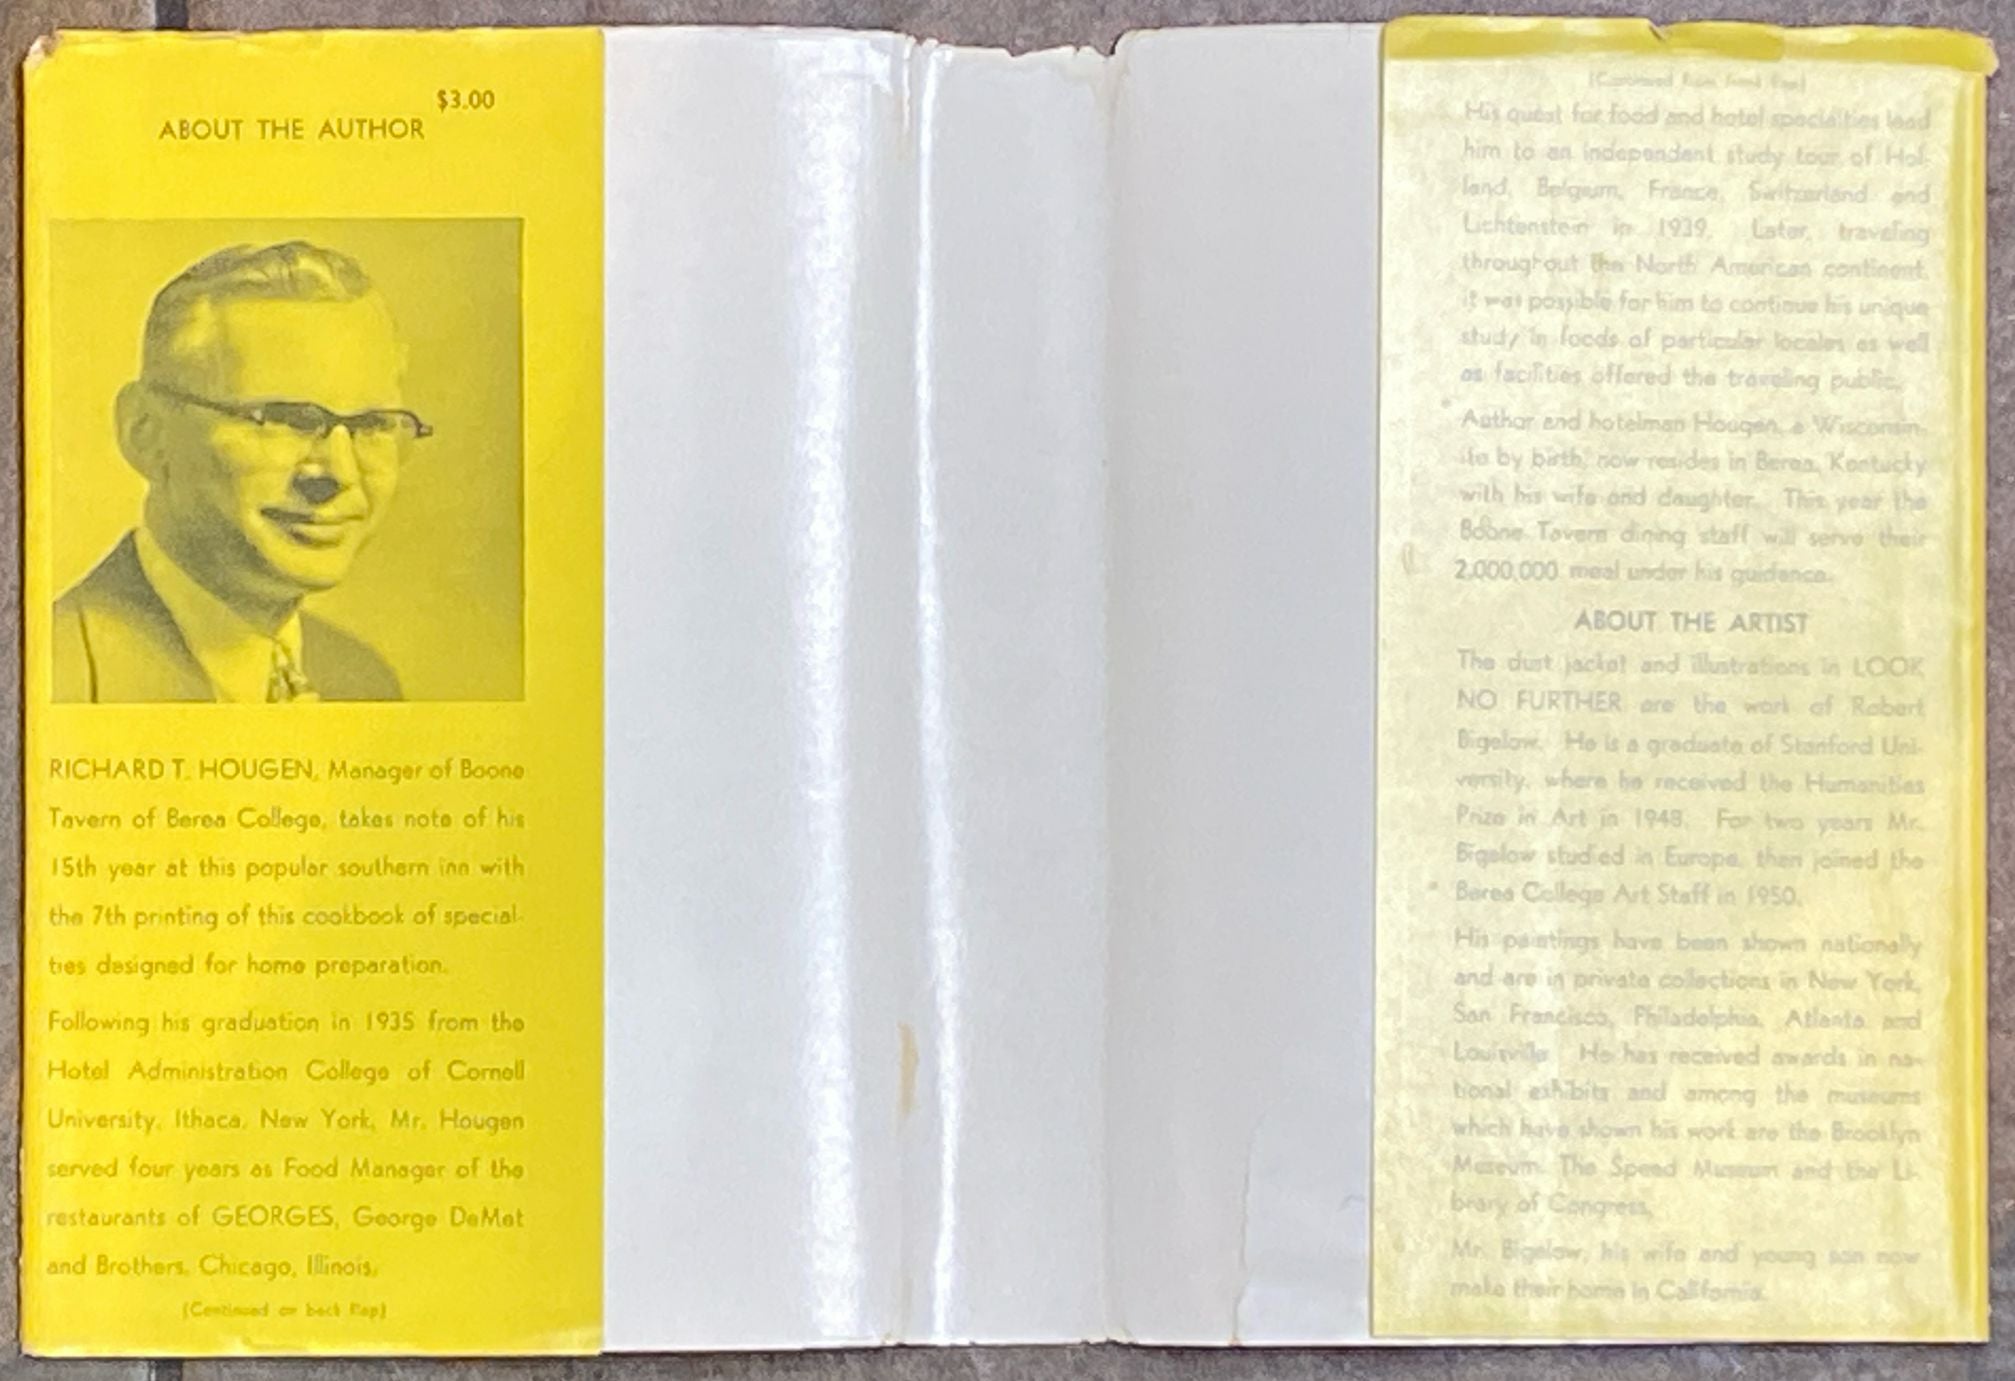 $3.00
ABOUT THE AUTHOR
RICHARD T. HOUGEN, Manager of Boone
Tavern of Berea College, takes note of his
15th year at this popular southern inn with
the 7th printing of this cookbook of special-
ties designed for home preparation.
Following his graduation in 1935 from the
Hotel Administration College of Cornell
University, Ithaca, New York, Mr. Hougen
served four years as Food Manager of the
restaurants of GEORGES, George DeMet
and Brothers, Chicago, Illinois.
(Continued on back flap)
(Continued from front flap)
His quest for food and hotel specialties lead
him to an independent study tour of Hol-
land, Belgium, France, Switzerland and
Lichtenstein in 1939. Later, traveling
throughout the North American continent,
it was possible for him to continue his unique
study in foods of particular locales as well
as facilities offered the traveling public.
Author and hotelman Hougen, a Wisconsin-
ite by birth, now resides in Berea, Kentucky
with his wife and daughter. This year the
Boone Tavern dining staff will serve their
2,000,000 meal under his guidance.
ABOUT THE ARTIST
The dust jacket and illustrations in LOOK
NO FURTHER are the work of Robert
Bigelow. He is a graduate of Stanford Uni-
versity, where he received the Humanities
Prize in Art in 1948. For two years Mr.
Bigelow studied in Europe, then joined the
Berea College Art Staff in 1950.
His paintings have been shown nationally
and are in private collections in New York,
San Francisco, Philadelphia, Atlanta and
Louisville. He has received awards in na-
tional exhibits and among the museums
which have shown his work are the Brooklyn
Museum, The Speed Museum and the Li-
brary of Congress.
Mr. Bigelow, his wife and young son now
make their home in California.